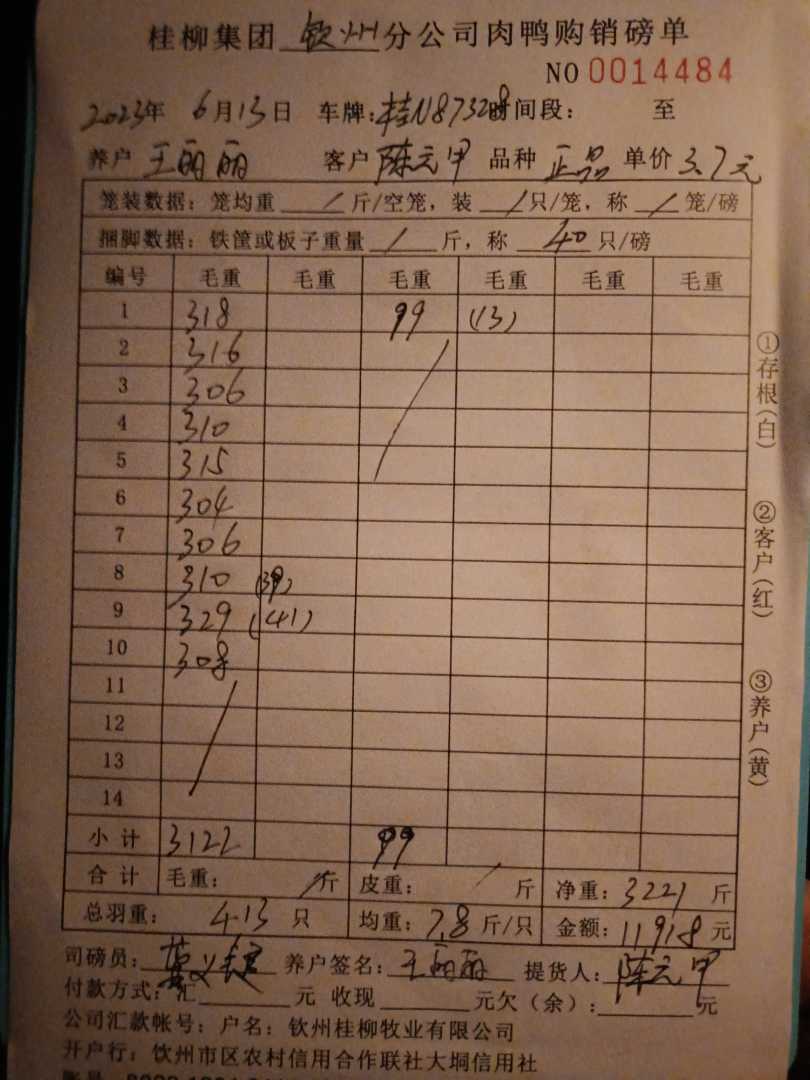 桂柳集团 钦州 分公司肉鸭购销磅单
NO 0014484
2023年 6月13日 车牌:桂N87328时间段: 至
养户 王丽丽 客户 陈元甲 品种 正品 单价 3.7元
笼装数据: 笼均重 / 斤/空笼, 装 / 只/笼, 称 / 笼/磅
捆脚数据: 铁筐或板子重量 / 斤, 称 40 只/磅
编号 毛重 毛重 毛重 毛重 毛重 毛重
1 318 99 (13)
2 316
3 306
4 310
5 315
6 304
7 306
8 310 (39)
9 329 (41)
10 308
11
12
13
14
小计 3122 99
合计 毛重: / 斤 皮重: / 斤 净重: 3221 斤
总羽重: 413 只 均重: 7.8 斤/只 金额: 11918 元
司磅员: 养户签名: 王丽丽 提货人: 陈元甲
付款方式: 汇 元 收现 元欠(余): 元
公司汇款帐号: 户名: 钦州桂柳牧业有限公司
开户行: 钦州市区农村信用合作联社大垌信用社
①存根(白)
②客户(红)
③养户(黄)